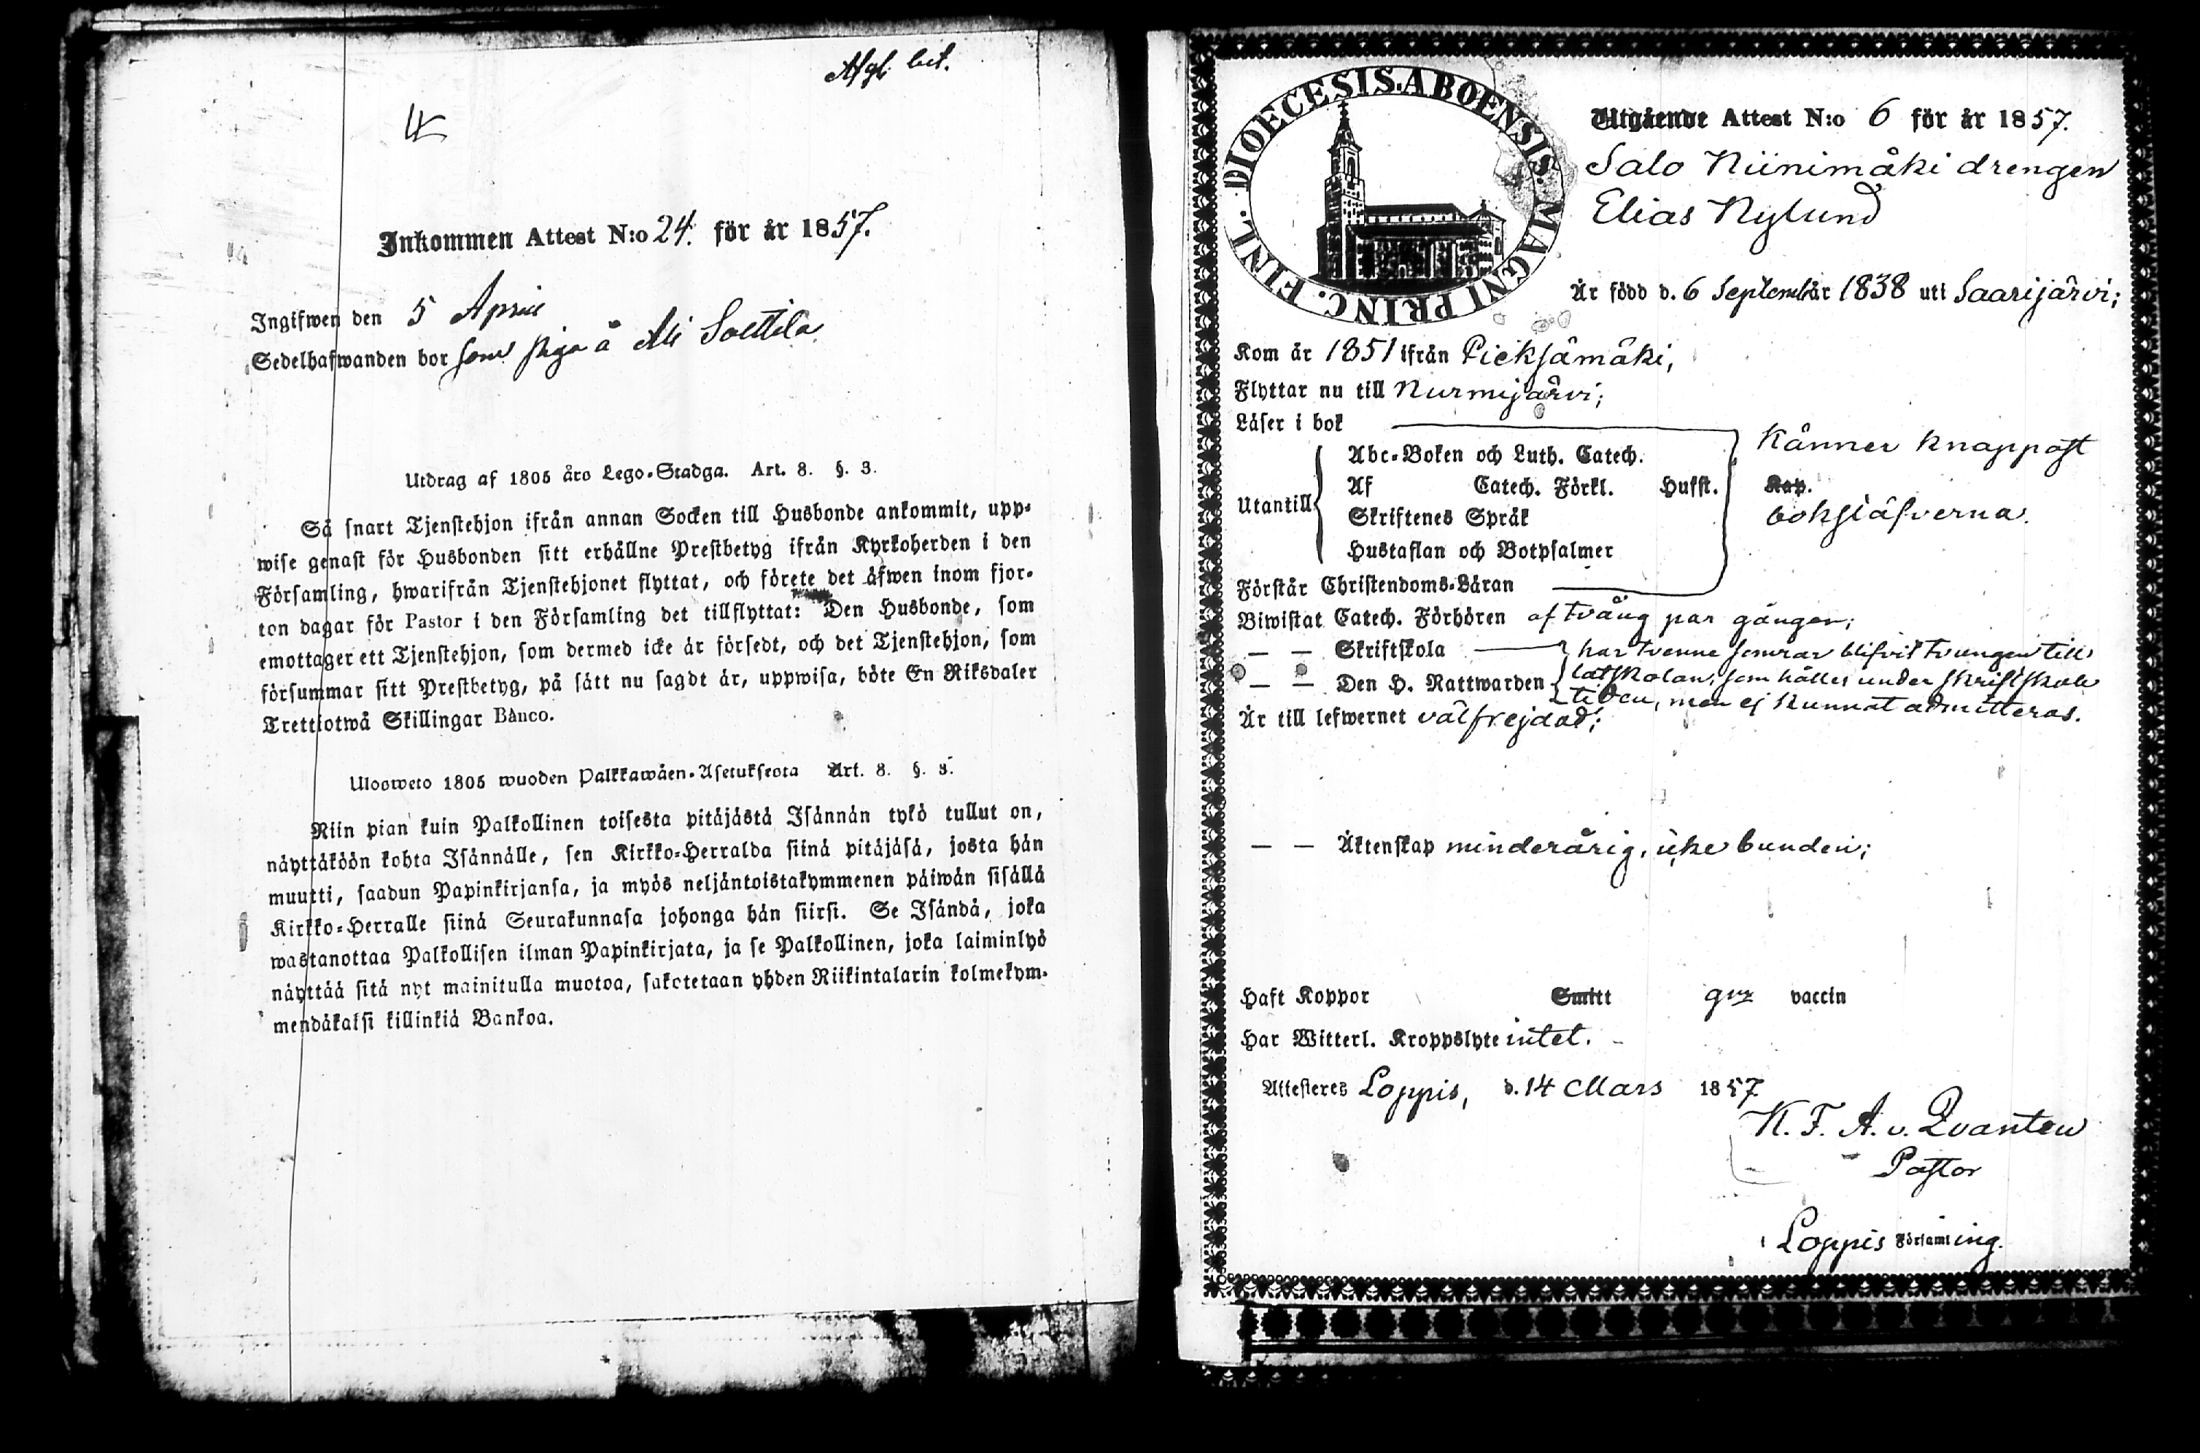 Afgl. bet.
Inkommen Attest N:o 24. för år 1857.
Ingifwen den 5 April
Sedelhafwanden bor som piga å Ali Solttila
Utdrag af 1805 års Lego-Stadga. Art. 8. §. 3.
Så snart Tjenstehjon ifrån annan Socken till Husbonde ankommit, upp-
wise genast för Husbonden sitt erhållne Prestbetyg ifrån Kyrkoherden i den
Församling, hwarifrån Tjenstehjonet flyttat, och förete det äfwen inom fjor-
ton dagar för Pastor i den Församling det tillflyttat: Den Husbonde, som
emottager ett Tjenstehjon, som dermed icke är försedt, och det Tjenstehjon, som
försummar sitt Prestbetyg, på sätt nu sagdt är, uppwisa, böte En Riksdaler
Trettiotwå Skillingar Banco.
Ulosweto 1805 wuoden Palkkawäen-Asetuksesta Art. 8. §. 3.
Niin pian kuin Palkollinen toisesta pitäjästä Isännän tykö tullut on,
näyttäköön kohta Isännälle, sen Kirkko-Herralda siinä pitäjäsä, josta hän
muutti, saadun Papinkirjansa, ja myös neljäntoistakymmenen päiwän sisällä
Kirkko-Herralle siinä Seurakunnasa johonga hän siirsi. Se Isändä, joka
wastanottaa Palkollisen ilman Papinkirjata, ja se Palkollinen, joka laiminlyö
näyttää sitä nyt mainitulla muotoa, sakotetaan yhden Riikintalarin kolmekym-
mendäkaksi killinkiä Bankoa.
DIOECESIS. ABOENSIS. MAGNI PRINC. FINL.
Utgående Attest N:o 6 för år 1857.
Salo Niinimäki drengen
Elias Nylund
Är född d. 6 September 1838 uti Saarijärvi;
Kom år 1851 ifrån Pieksämäki,
Flyttar nu till Nurmijärvi;
Läser i bok
Känner knappast
Abc-Boken och Luth. Catech.
Utantill Af Catech. Förkl. Husst. Kap.
Skriftenes Språk bokstäfverna.
Hustaflan och Botpsalmer
Förstår Christendoms-Läran
Biwistat Catech. Förhören af tvång par gånger;
— — Skriftskola har tvenne somrar blifvit tvungen till
— — Den H. Nattwarden lässkolan, som hålles under skriftskole
tiden, men ej kunnat admitteras.
Är till lefwernet välfrejdad;
— — Äktenskap minderårig, icke bunden;
Haft Koppor Smitt gm vaccin
Har Witterl. Kroppslyte intet.
Attesteres Loppis, d. 14 Mars 1857
K. F. A. v. Qvanten
Pastor
i Loppis Församling.